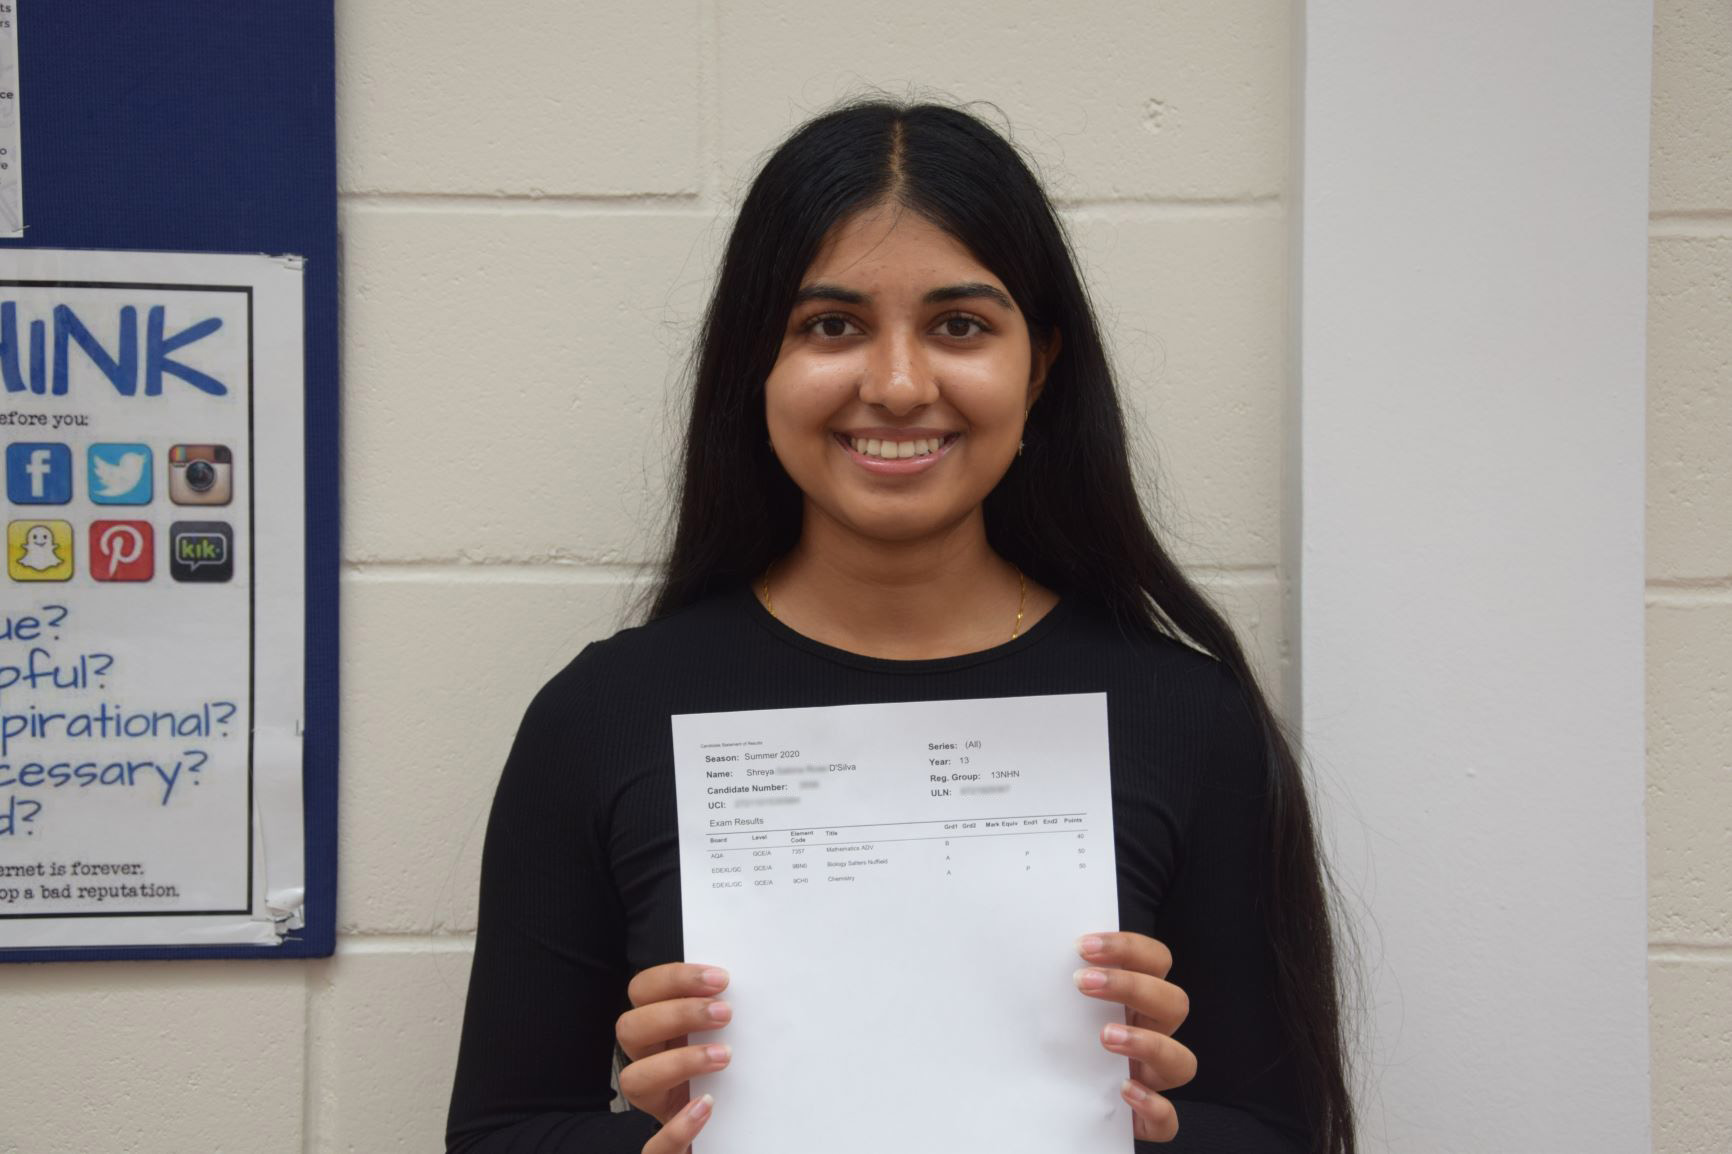 ts
rs
ce
o
e
HINK
efore you:
f
kik.
ue?
pful?
pirational?
cessary?
d?
ernet is forever.
op a bad reputation.
Candidate Statement of Results
Season: Summer 2020 Series: (All)
Name: Shreya D'Silva Year: 13
Candidate Number: Reg. Group: 13NHN
UCI: ULN:
Exam Results
Board Level Element Code Title Grd1 Grd2 Mark Equiv End1 End2 Points
AQA GCE/A 7357 Mathematics ADV B 40
EDEXL/GC GCE/A 9BN0 Biology Salters Nuffield A P 50
EDEXL/GC GCE/A 9CH0 Chemistry A P 50